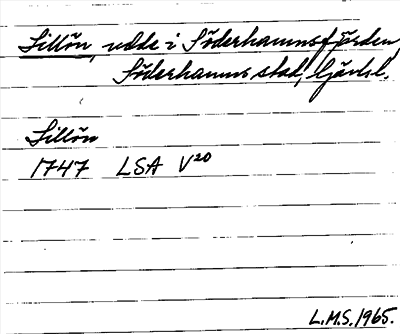 Lillön, udde i Söderhamnsfjärden,
Söderhamns stad, Gävlel.
Lillön
1747 LSA V20
L.M.S. 1965.